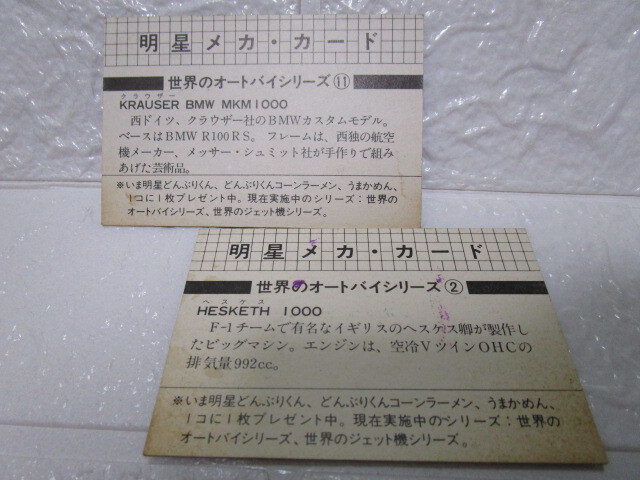 明星メカ・カード
世界のオートバイシリーズ⑪
クラウザー
KRAUSER BMW MKM1000
西ドイツ、クラウザー社のBMWカスタムモデル。
ベースはBMW R100RS。フレームは、西独の航空
機メーカー、メッサー・シュミット社が手作りで組み
あげた芸術品。
※いま明星どんぶりくん、どんぶりくんコーンラーメン、うまかめん、
1コに1枚プレゼント中。現在実施中のシリーズ：世界の
オートバイシリーズ、世界のジェット機シリーズ。
明星メカ・カード
世界のオートバイシリーズ②
ヘスケス
HESKETH 1000
F-1チームで有名なイギリスのヘスケス卿が製作し
たビッグマシン。エンジンは、空冷VツインOHCの
排気量992cc。
※いま明星どんぶりくん、どんぶりくんコーンラーメン、うまかめん、
1コに1枚プレゼント中。現在実施中のシリーズ：世界の
オートバイシリーズ、世界のジェット機シリーズ。